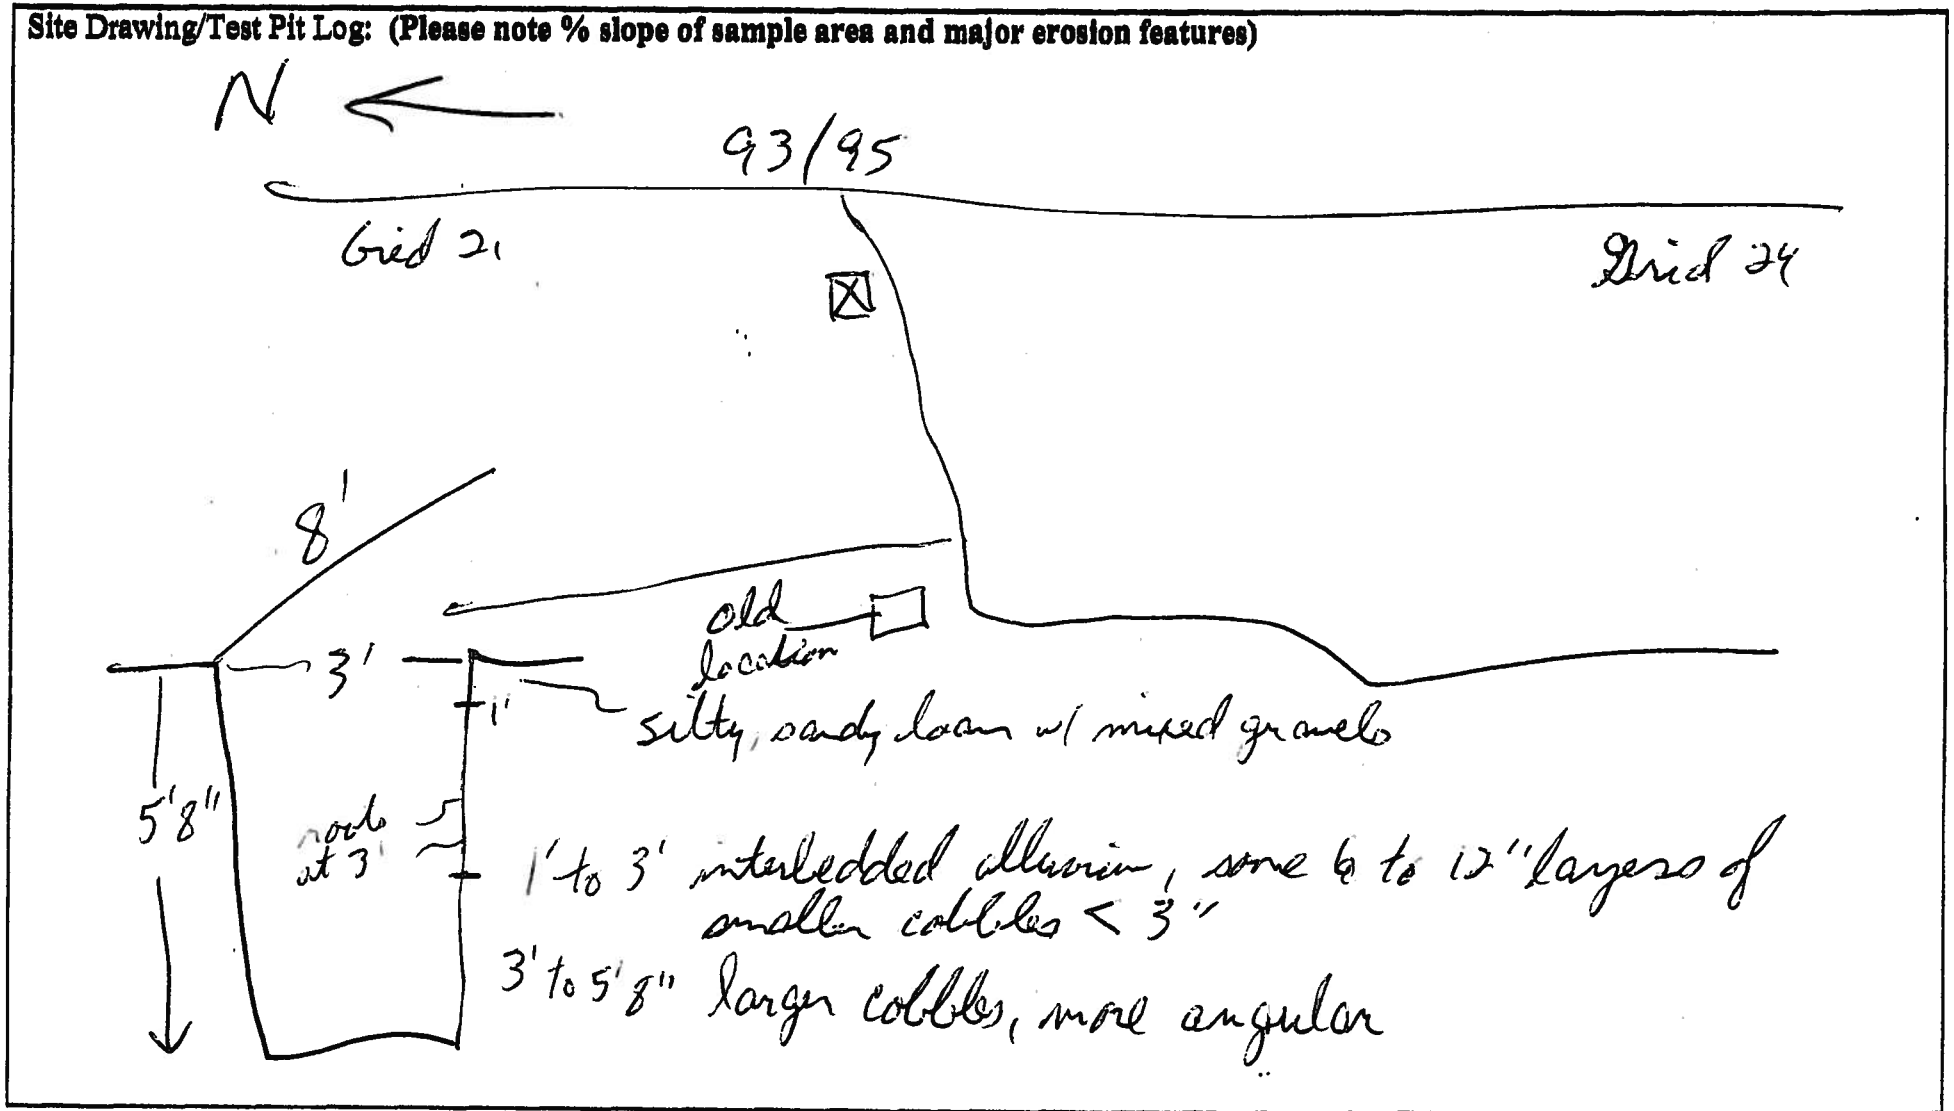 Site Drawing/Test Pit Log: (Please note % slope of sample area and major erosion features)
N
93/95
Grid 21
Grid 24
8'
old
location
3'
1'
silty, sandy loam w/ mixed gravels
5'8"
roots
at 3'
1' to 3' interbedded alluvium, some 6 to 12" layers of
smaller cobbles < 3"
3' to 5'8" larger cobbles, more angular